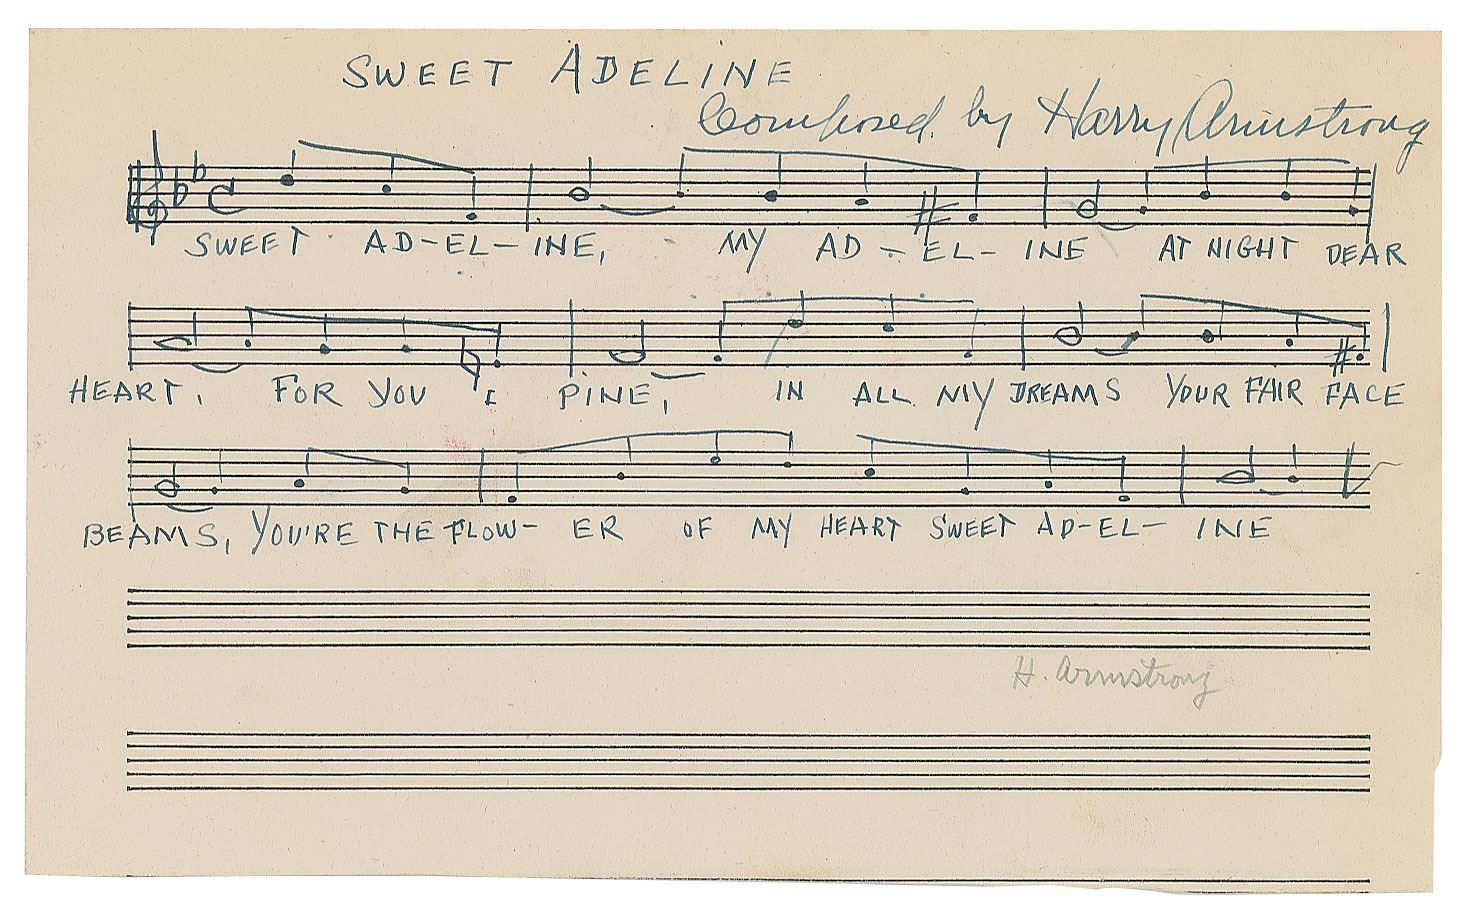 SWEET ADELINE
Composed by Harry Armstrong
SWEET AD-EL-INE, MY AD-EL-INE AT NIGHT DEAR
HEART, FOR YOU I PINE, IN ALL MY DREAMS YOUR FAIR FACE
BEAMS, YOU'RE THE FLOW-ER OF MY HEART SWEET AD-EL-INE
H. Armstrong